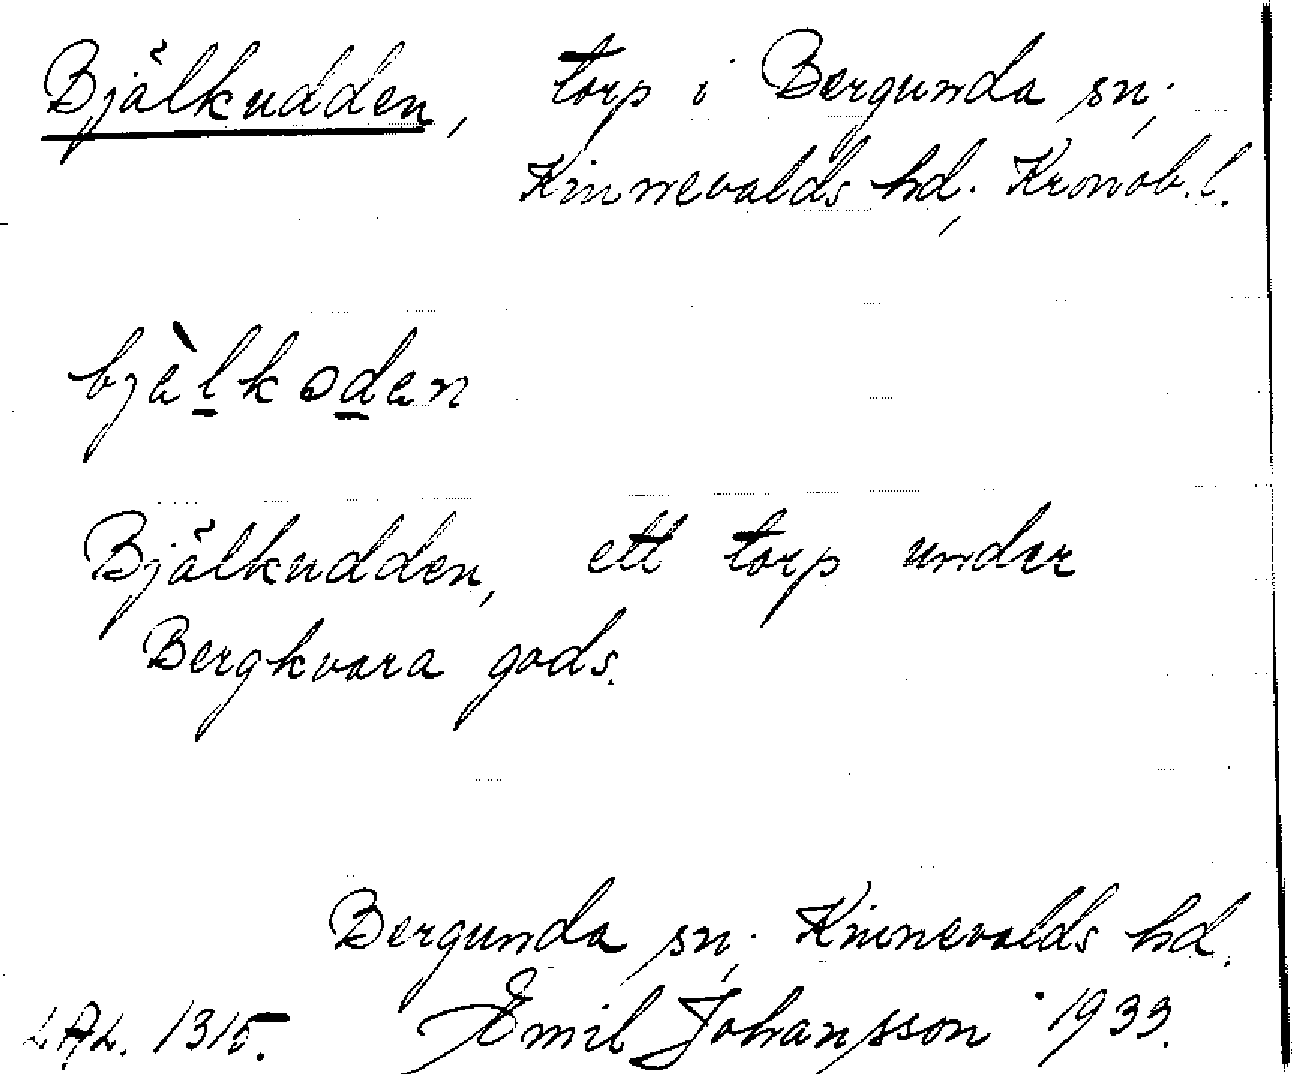 Bjälkudden, torp i Bergunda sn;
Kinnevalds hd; Kronob. l.
bjèlkoden
Bjälkudden, ett torp under
Bergkvara gods.
Bergunda sn; Kinnevalds hd.
LAL. 1315. Emil Johansson 1933.